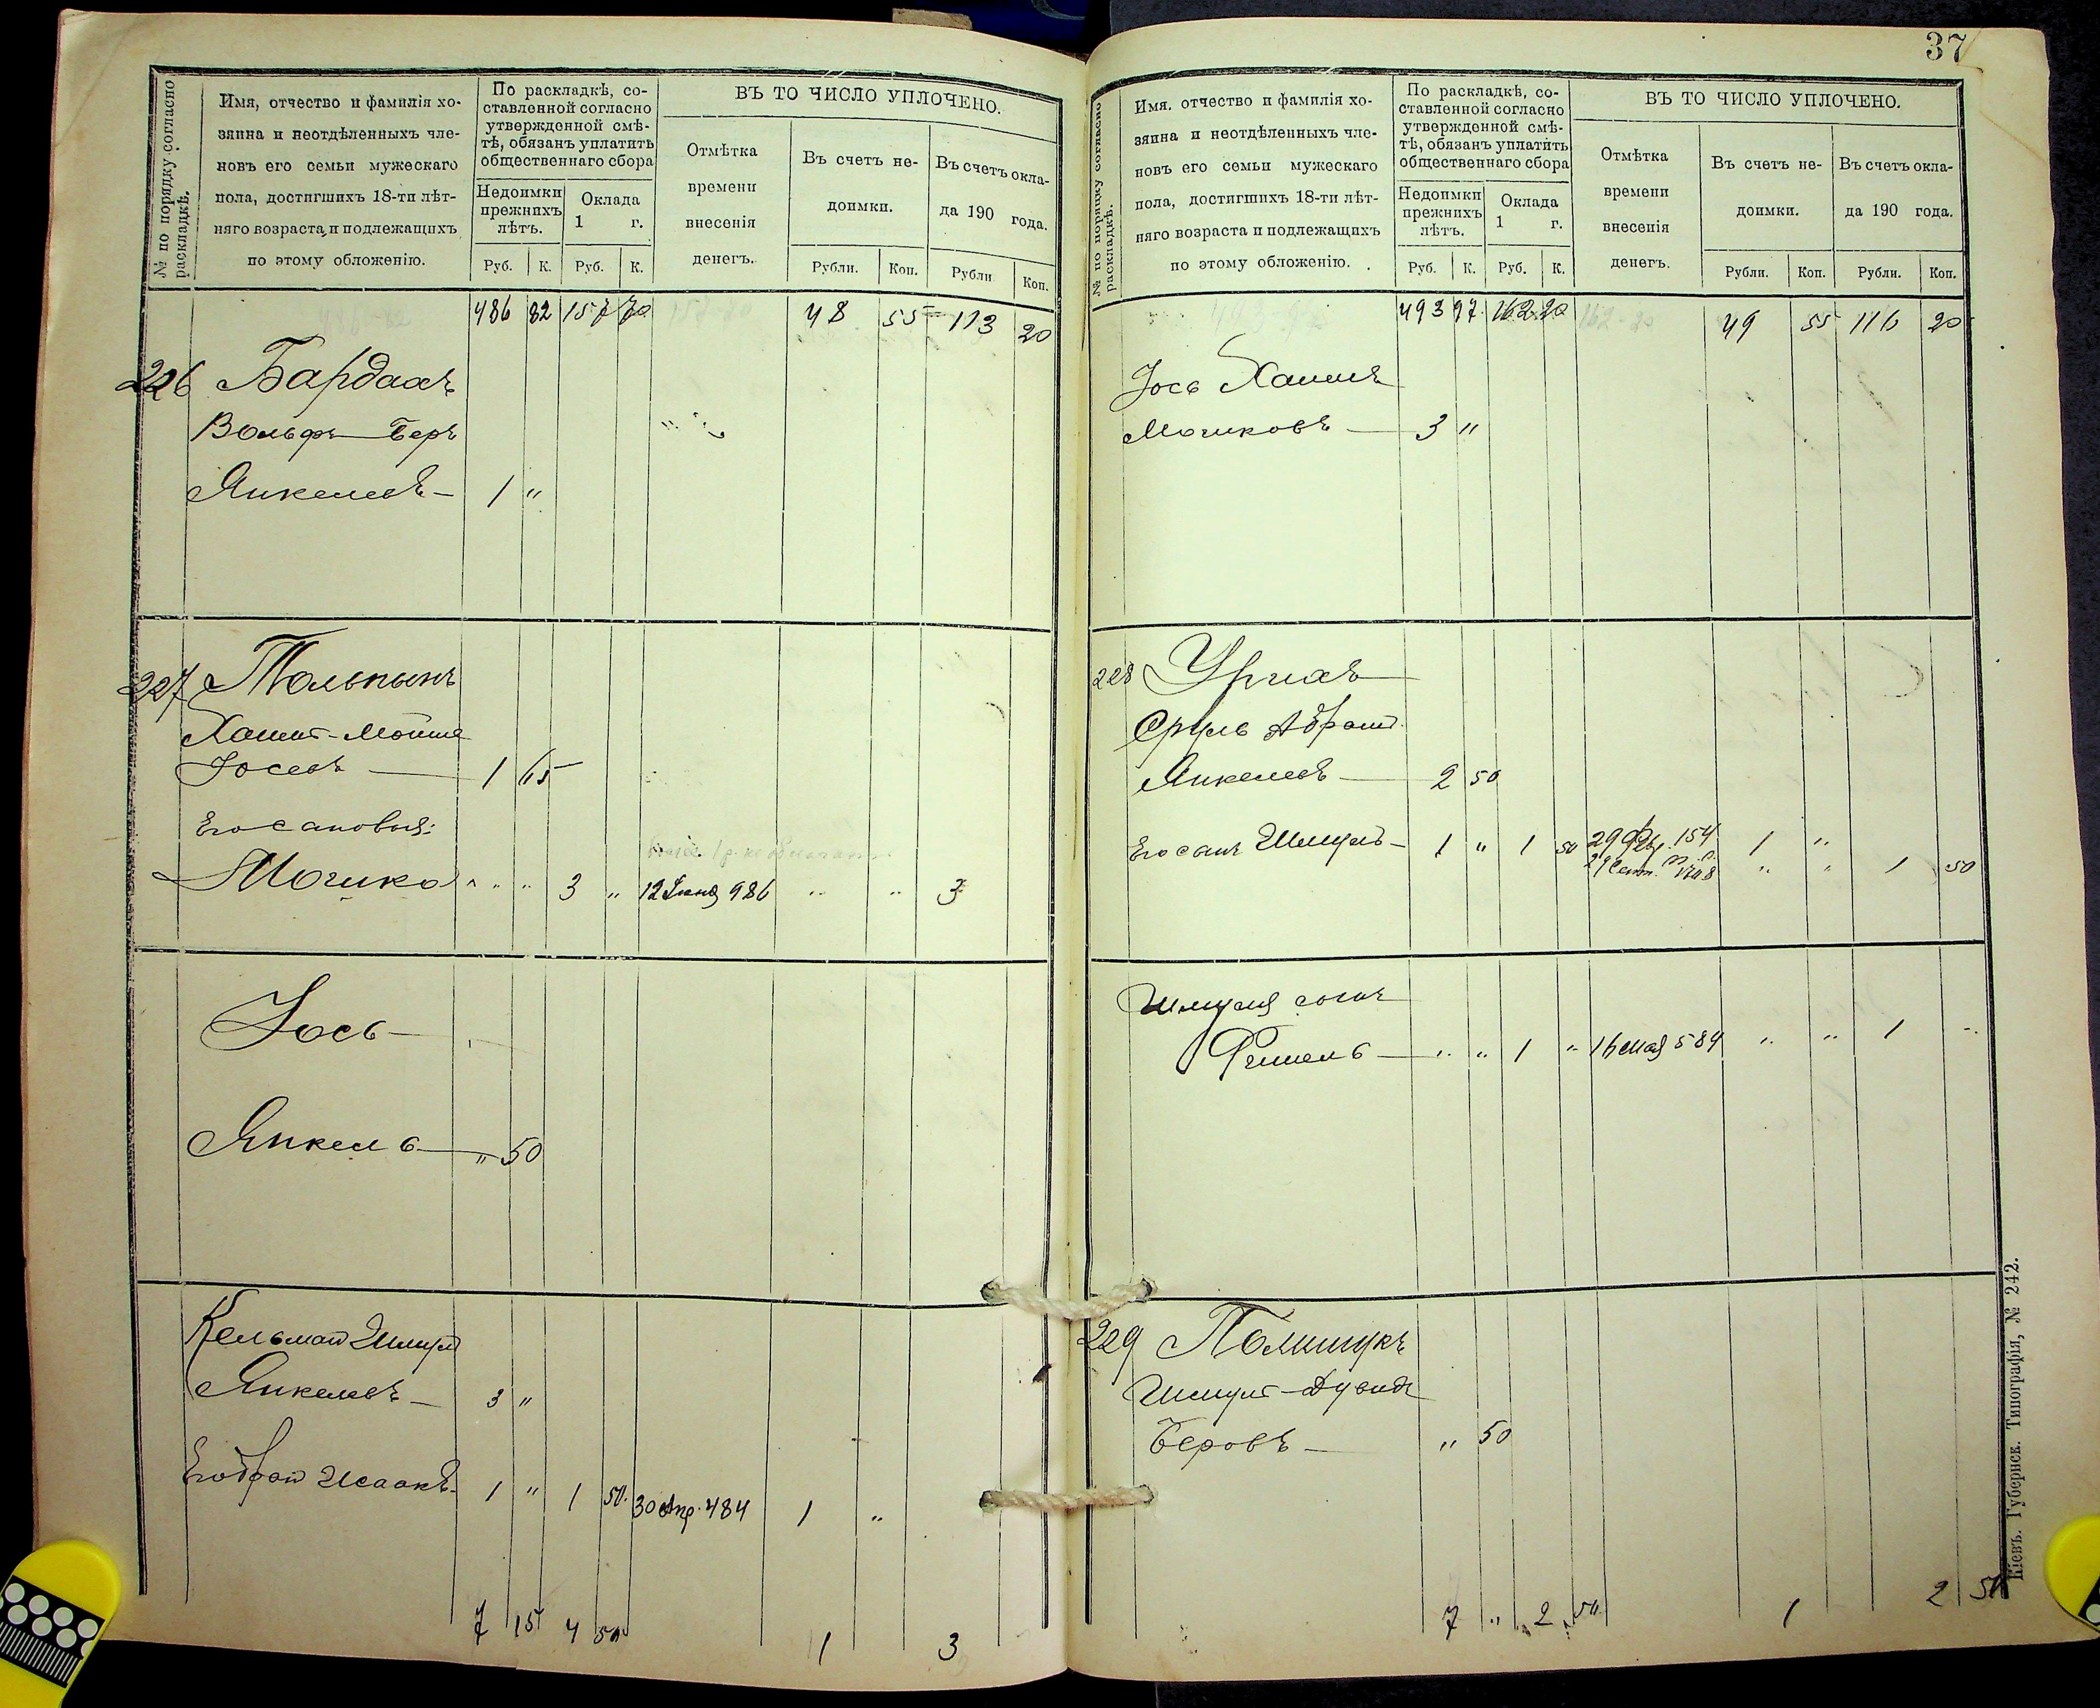 № по порядку согласно раскладкѣ.
Имя, отчество и фамилія хо-
зяина и неотдѣленныхъ чле-
новъ его семьи мужескаго
пола, достигшихъ 18-ти лѣт-
няго возраста и подлежащихъ
по этому обложенію.
По раскладкѣ, со-
ставленной согласно
утвержденной смѣ-
тѣ, обязанъ уплатить
общественнаго сбора
Недоимки
прежнихъ
лѣтъ.
Оклада
1 г.
Руб. К. Руб. К.
ВЪ ТО ЧИСЛО УПЛОЧЕНО.
Отмѣтка
времени
внесенія
денегъ.
Въ счетъ не-
доимки.
Въ счетъ окла-
да 190 года.
Рубли. Коп. Рубли Коп.
486 82 157 70 48 55 113 20
226 Бардахъ
Вольфъ-Беръ
Янкелевъ - 1 "
227 Толькынъ
Хаимъ-Мойше
Іосевъ 1 65
Его сановья:
Мошко " " 3 " 12 Іюня 986 " " 3
Іось
Янкель " 50
Кельман Шмул
Янкелевъ - 3 "
Его брат Исаакъ - 1 " 1 50 30 Апр. 484 1 "
7 15 4 50 1 3
37
№ по порядку согласно раскладкѣ.
Имя, отчество и фамилія хо-
зяина и неотдѣленныхъ чле-
новъ его семьи мужескаго
пола, достигшихъ 18-ти лѣт-
няго возраста и подлежащихъ
по этому обложенію.
По раскладкѣ, со-
ставленной согласно
утвержденной смѣ-
тѣ, обязанъ уплатить
общественнаго сбора
Недоимки
прежнихъ
лѣтъ.
Оклада
1 г.
Руб. К. Руб. К.
ВЪ ТО ЧИСЛО УПЛОЧЕНО.
Отмѣтка
времени
внесенія
денегъ.
Въ счетъ не-
доимки.
Въ счетъ окла-
да 190 года.
Рубли. Коп. Рубли. Коп.
493 97 162 20 49 55 116 20
Іось Хаимъ
Мошковъ - 3 "
228 Урихъ
Сруль Абрам
Янкелевъ - 2 50
Его сынъ Шмуль - 1 " 1 50 29 Фев. 154 1 "
29 Сент. " " 1 50
Шмуля сынъ
Фишель - " " 1 " 16 Мая 584 " " 1 "
229 Полищукъ
Шмулъ-Дувидъ
Беровъ - " 50
7 " 2 50 1 2 50
Кіевъ. Губернск. Типографія, № 242.